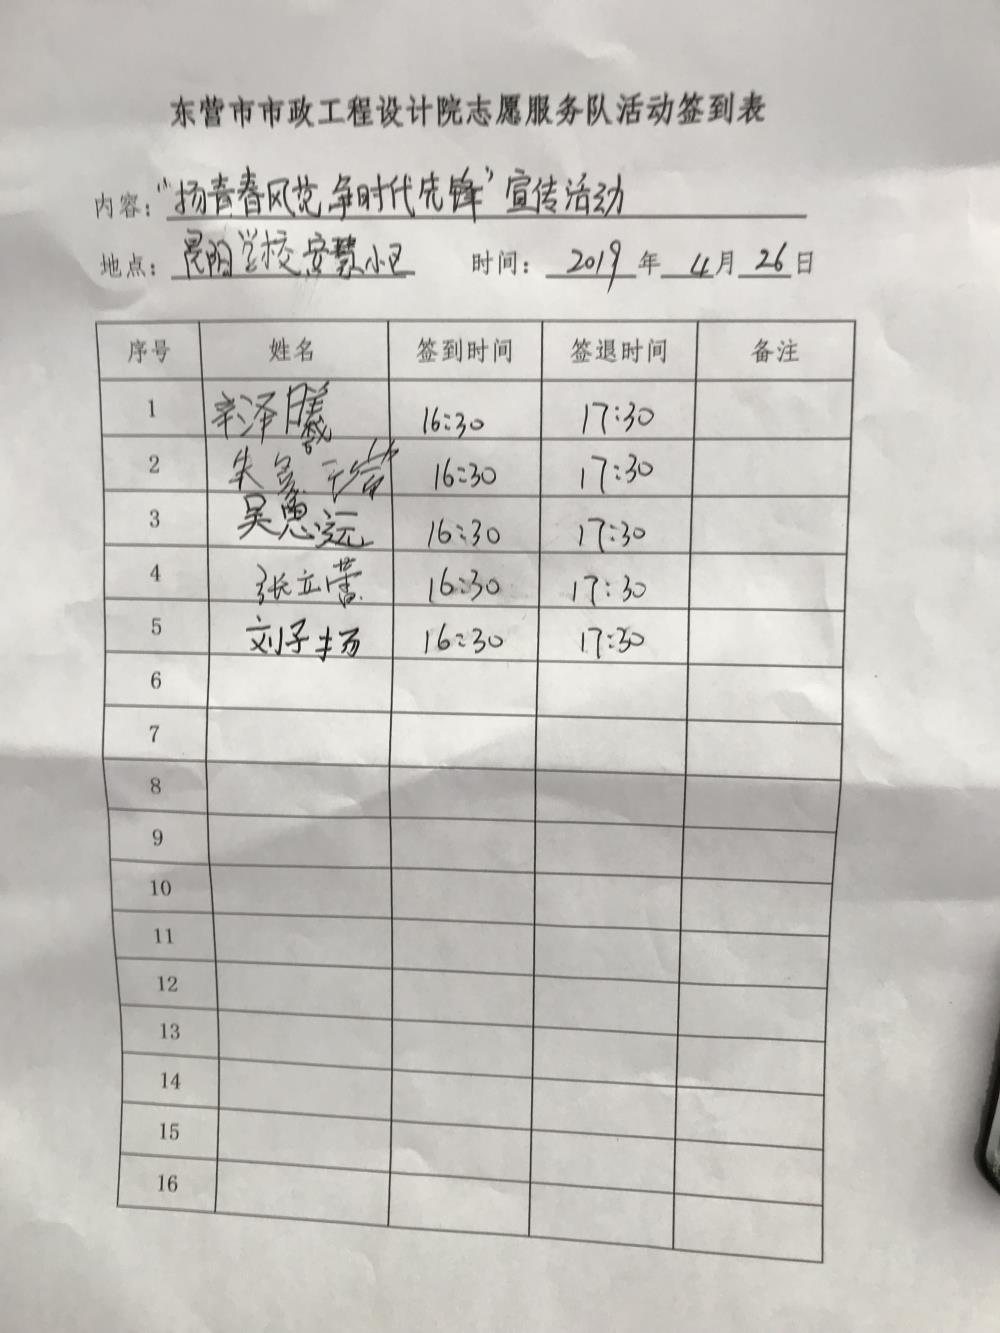 东营市市政工程设计院志愿服务队活动签到表
内容：“扬青春风范 争时代先锋”宣传活动
地点：晨阳学校 安慧小区 时间：2019年4月26日
序号 姓名 签到时间 签退时间 备注
1 16:30 17:30
2 16:30 17:30
3 吴思远 16:30 17:30
4 张立蕾 16:30 17:30
5 刘子扬 16:30 17:30
6
7
8
9
10
11
12
13
14
15
16